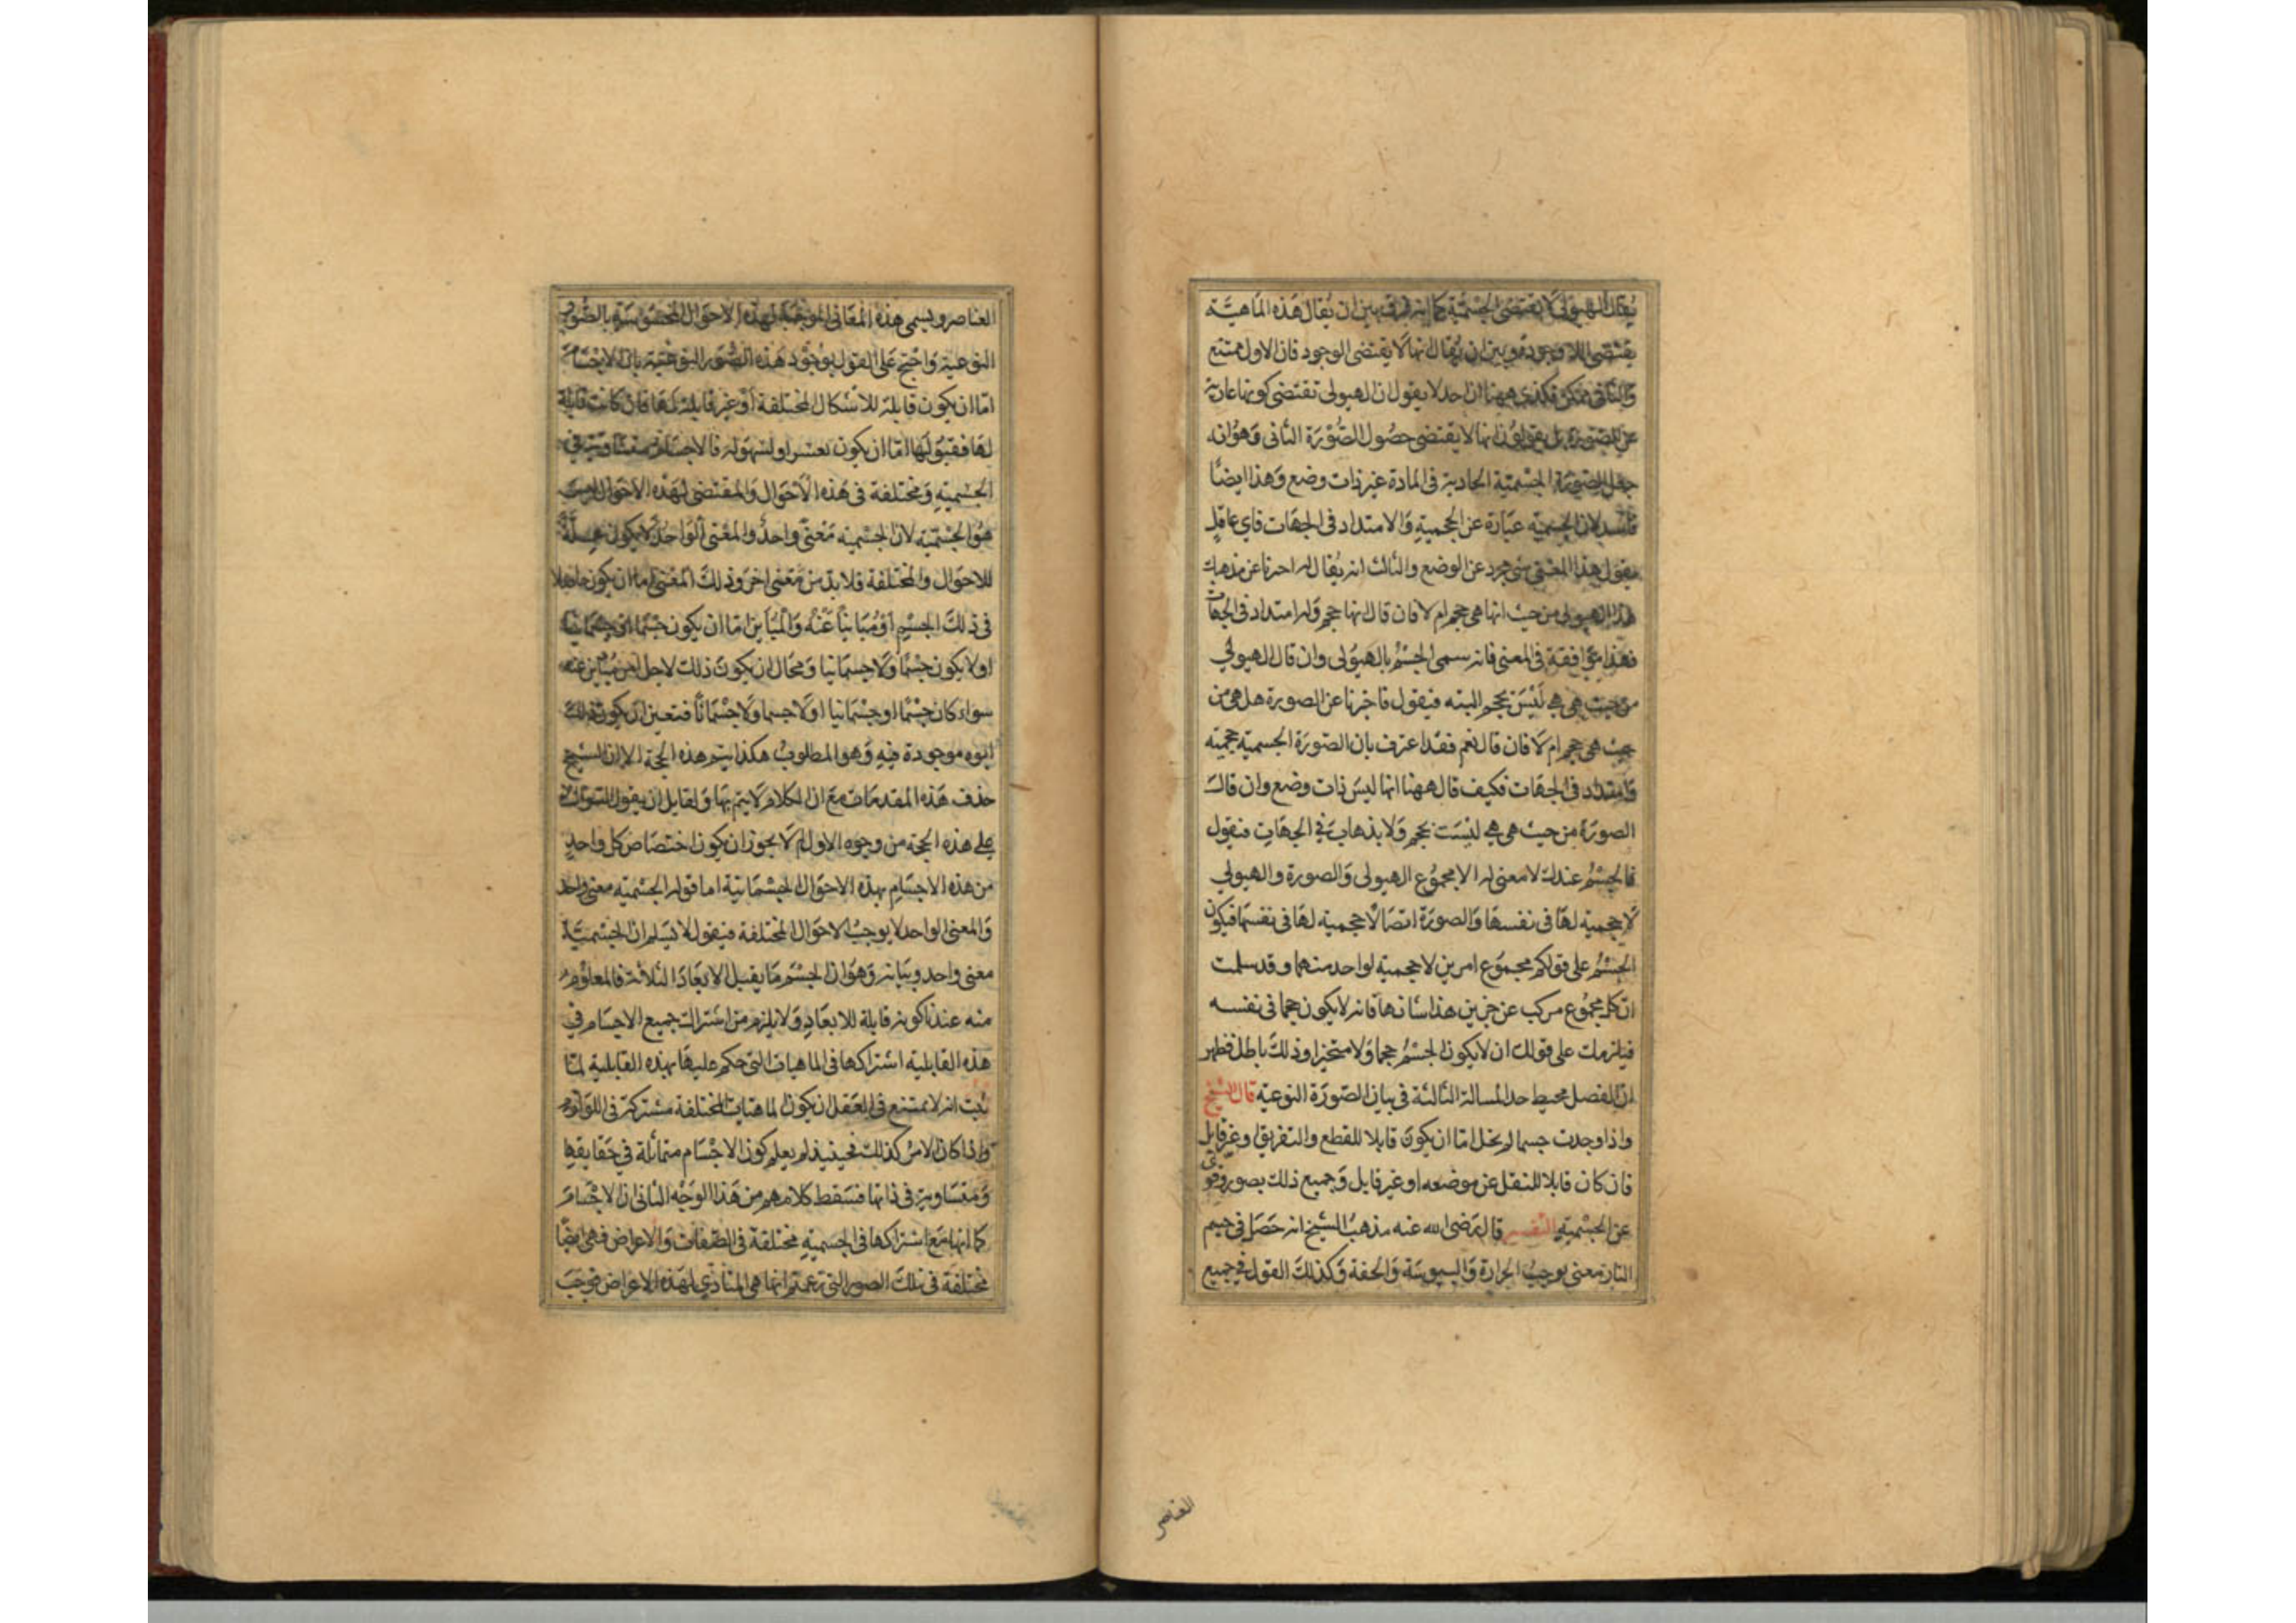 يُقال الهيولى لا تقتضى الجسمية كما انه فرق بين ان يُقال هَذه المَاهيَّة
يقتضى اللا وجود وبين ان يُقال انها لا يقتضى الوجود فان الاول ممتنع
وَالثانى ممكن فكذى ههنا ان احد لا يقول ان الهيولى تقتضى كونها عارية
عن الصورة بل يقولون انها لا يقتضى حصُول الصُّوْرَة الثانى وَهوُ انه
جعل الصّورَة الجسْمية الحادية فى المادة غير ذات وضع وَهذا ايضاً
فاسد لان الجسمية عبَارة عن الحجمية وَالامتداد فى الجهَات فاى عاقل
يقول هذا المعنى شى مجرد عن الوضع والثالث انه يُقال له اخبرنا عن مذهبك
هذا الهيولى من حيث انها هى حجم ام لا فان قال انها حجم وَله امتداد فى الجهات
فهذا موَافقة فى المعنى فانه سمى الجسْمُ بالهيوُلى وان قال الهيولى
من حيث هى هى لَيْسَ بحجم البته فيقول فاخبرنا عن الصورة هل هى من
حيث هى حجم ام لَا فان قال نعم فقد اعترف بان الصّورَة الجسمية حجمية
وَامتداد فى الجهَات فكيف قال ههنا انها ليسَ ذات وضع وان قالَ
الصورَةُ من حيث هى هى ليْسَت بحجم وَلا بذهابَ فى الجهَاتِ فنقول
فالجسْمُ عندك لا معنى له الا مجموُع الهيولى وَالصورة والهيولى
لَا حجمية لهَا فى نفسهَا وَالصورَة اتصَالا حجمية لهَا فى نفسهَا فيكون
الجسْمُ على قولكم مجمُوَع امرين لا حجمية لواحد منهما وقد سلمت
ان كل مجمُوع مركب عن جزين هذا شانهما فانه لا يكون حجما فى نفسه
فيلزمك على قولك ان لا يكون الجسْمُ حجما وَلا متحيزا وذلكَ باطل فظهر
ان الفصل محيط حد المسالة الثالثة فى بيان الصّورَة النوعية قال الشيخ
واذا وجدت جسما لم يخل امّا ان يكونَ قابلا للقطع والتفريق او غير قابل
فان كان قابلا للنقل عن موضعه او غير قابل وَجميع ذلك بصور وقوى
عن الجسْمية التفسير قال رَضى الله عنه مذهبُ الشيخ انه حَصَل فى جسم
النار معنى يوجبُ الحرارة وَاليبوسَة وَالخفة وَكذلكَ القول فى جميع
العناصر
العناصر ويسمى هذه المعَانى الموجبة لهذه الاحوَال المخصُوصَة بالصُّوَر
النوعية وَاحتج عَلى القول بوجُود هَذه الصُّوَر النوعية بان الاجْسَامَ
امّا ان يكون قابلة للاشكال المختلفة أوْ غير قابلة لهَا فان كانت قابلة
لهَا فقبُوَلهَا امّا ان يكون بعسْر او لسهُولة فالاجسَام متسَاوية فى
الجسْميةِ وَمختلفة فى هَذه الاَحْوَال وَالمقتضى لهَذه الاحْوَال ليسَ
هوُ الجسْمَية لان الجسْمية مَعْنىً واحدٌ والمعْنى الوَاحدُ لا يكون علّةً
للاحوَال والمختلفة فلا بدّ من مَعنى اخرَ وَذلكَ المعْنى امّا ان يكون حَاصلا
فى ذلكَ الجسْمِ أوْ مُبَايناً عَنْهُ وَالمُبَاين امّا ان يكون جسْمًا اوْ جسْمَانيًا
او لا يكون جسْمًا وَلا جسمَانيا وَمحَال ان يكونَ ذلك لاجل امر مُباين عنه
سواء كان جسْمًا او جسْمَانيا او لا جسما وَلا جسْمَانًا فتعين ان يكون ذلك
موجودة فيهِ وَهو المطلوبُ هكذا يتم هذه الحجة الا ان الشيخ
حذف هَذه المقدمَات معَ ان الكلام لَا يتم بهَا وَلقايل ان يقول السّوال
على هذه الحجة من وجوه الاول لم لَا يجوز ان يكون اختصَاصَ كل واحدٍ
من هذه الاجسَام بهذه الاحوَال الجسْمَانية اما قوله الجسْمية معنى واحد
وَالمعنى الواحد لا يوجبُ الاحوَال المختلفة فيقول لا نسلم ان الجسْميَّة
معنى واحد وبيَانه وَهوَ ان الجسْمَ مَا يقبل الابعَادَ الثلاثة فالمعلوُم
منه عندنا كونه قابلة للابعَادِ وَلا يلزم من اشتراك جميع الاجسَام فى
هذه القابلية اشتراكهَا فى الماهيات التى حكم عليهَا بهذه القابلية لمّا
ثبت انه لا يمتنع فى العَقل ان يكون الماهيات المختلفة مشتركة فى اللوَازم
وَاذا كان الامرُ كذلكَ فحينيذ لم يعلم كون الاجْسَام متماثلة فى حَقايقهِا
وَمتسَاوية فى ذاتها فسَقط كلامهم من هَذا الوَجْه الثانى ان الاجْسَامَ
كما انها معَ اشتراكهَا فى الجسمية مختلفة فى الصّفات وَالاعراض فهى ايضًا
مختلفة فى تلكَ الصور التى زعمتم انهَا هى المبَادى لهَذه الاعرَاض فوجَبَ